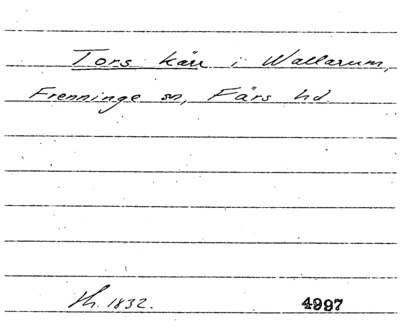 Tors kärr i Wallarum,
Frenninge sn, Färs hd.
Th. 1832.
4997